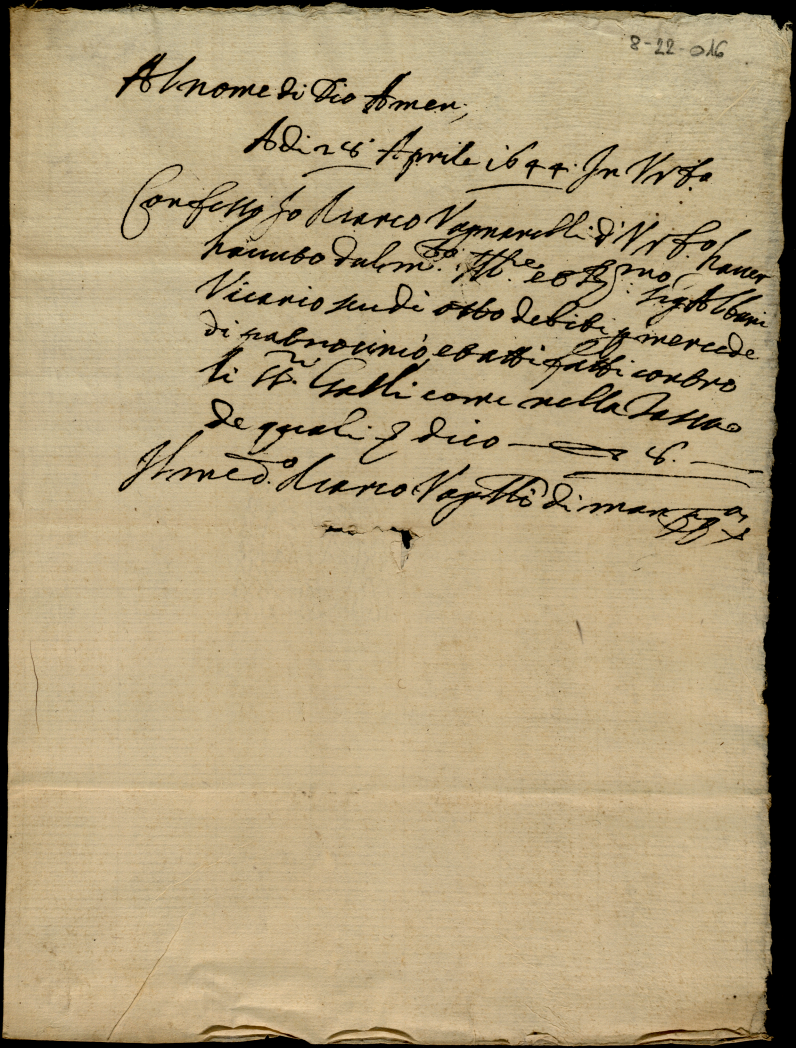 8-22-016
Al nome di Dio Amen,
Adi 28 Aprile 1644. In Urb.o
Confesso Io Marco Vagnarelli d'Urb.o haver
havuto dal m.to Ill.re e R.mo sig.r Albani
Vicario scudi otto debiti p mercede
di patrocinio, et atti fatti contro
li SS.ri Galli come nella Tassa
de quali p dico — 8. —
Il med.o Marco Vag.lli di man pp.a